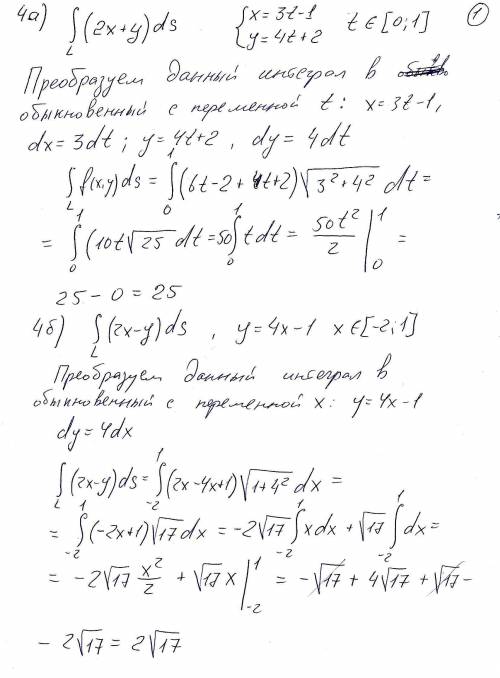 4а) ∫_L (2x+y)ds { x=3t-1 y=4t+2 t∈[0;1] ①
Преобразуем данный интеграл в
обыкновенный с переменной t: x=3t-1,
dx=3dt; y=4t+2, dy=4dt
∫_L f(x,y)ds = ∫_0^1 (6t-2+4t+2)√(3²+4²) dt =
= ∫_0^1 (10t√25 dt = 50∫_0^1 t dt = 50t²/2 |_0^1 =
25-0=25
4б) ∫_L (2x-y)ds, y=4x-1 x∈[-2;1]
Преобразуем данный интеграл в
обыкновенный с переменной x: y=4x-1
dy=4dx
∫_L (2x-y)ds = ∫_{-2}^1 (2x-4x+1)√(1+4²) dx =
= ∫_{-2}^1 (-2x+1)√17 dx = -2√17 ∫_{-2}^1 x dx + √17 ∫_{-2}^1 dx =
= -2√17 x²/2 + √17 x |_{-2}^1 = -√17 + 4√17 + √17 -
- 2√17 = 2√17